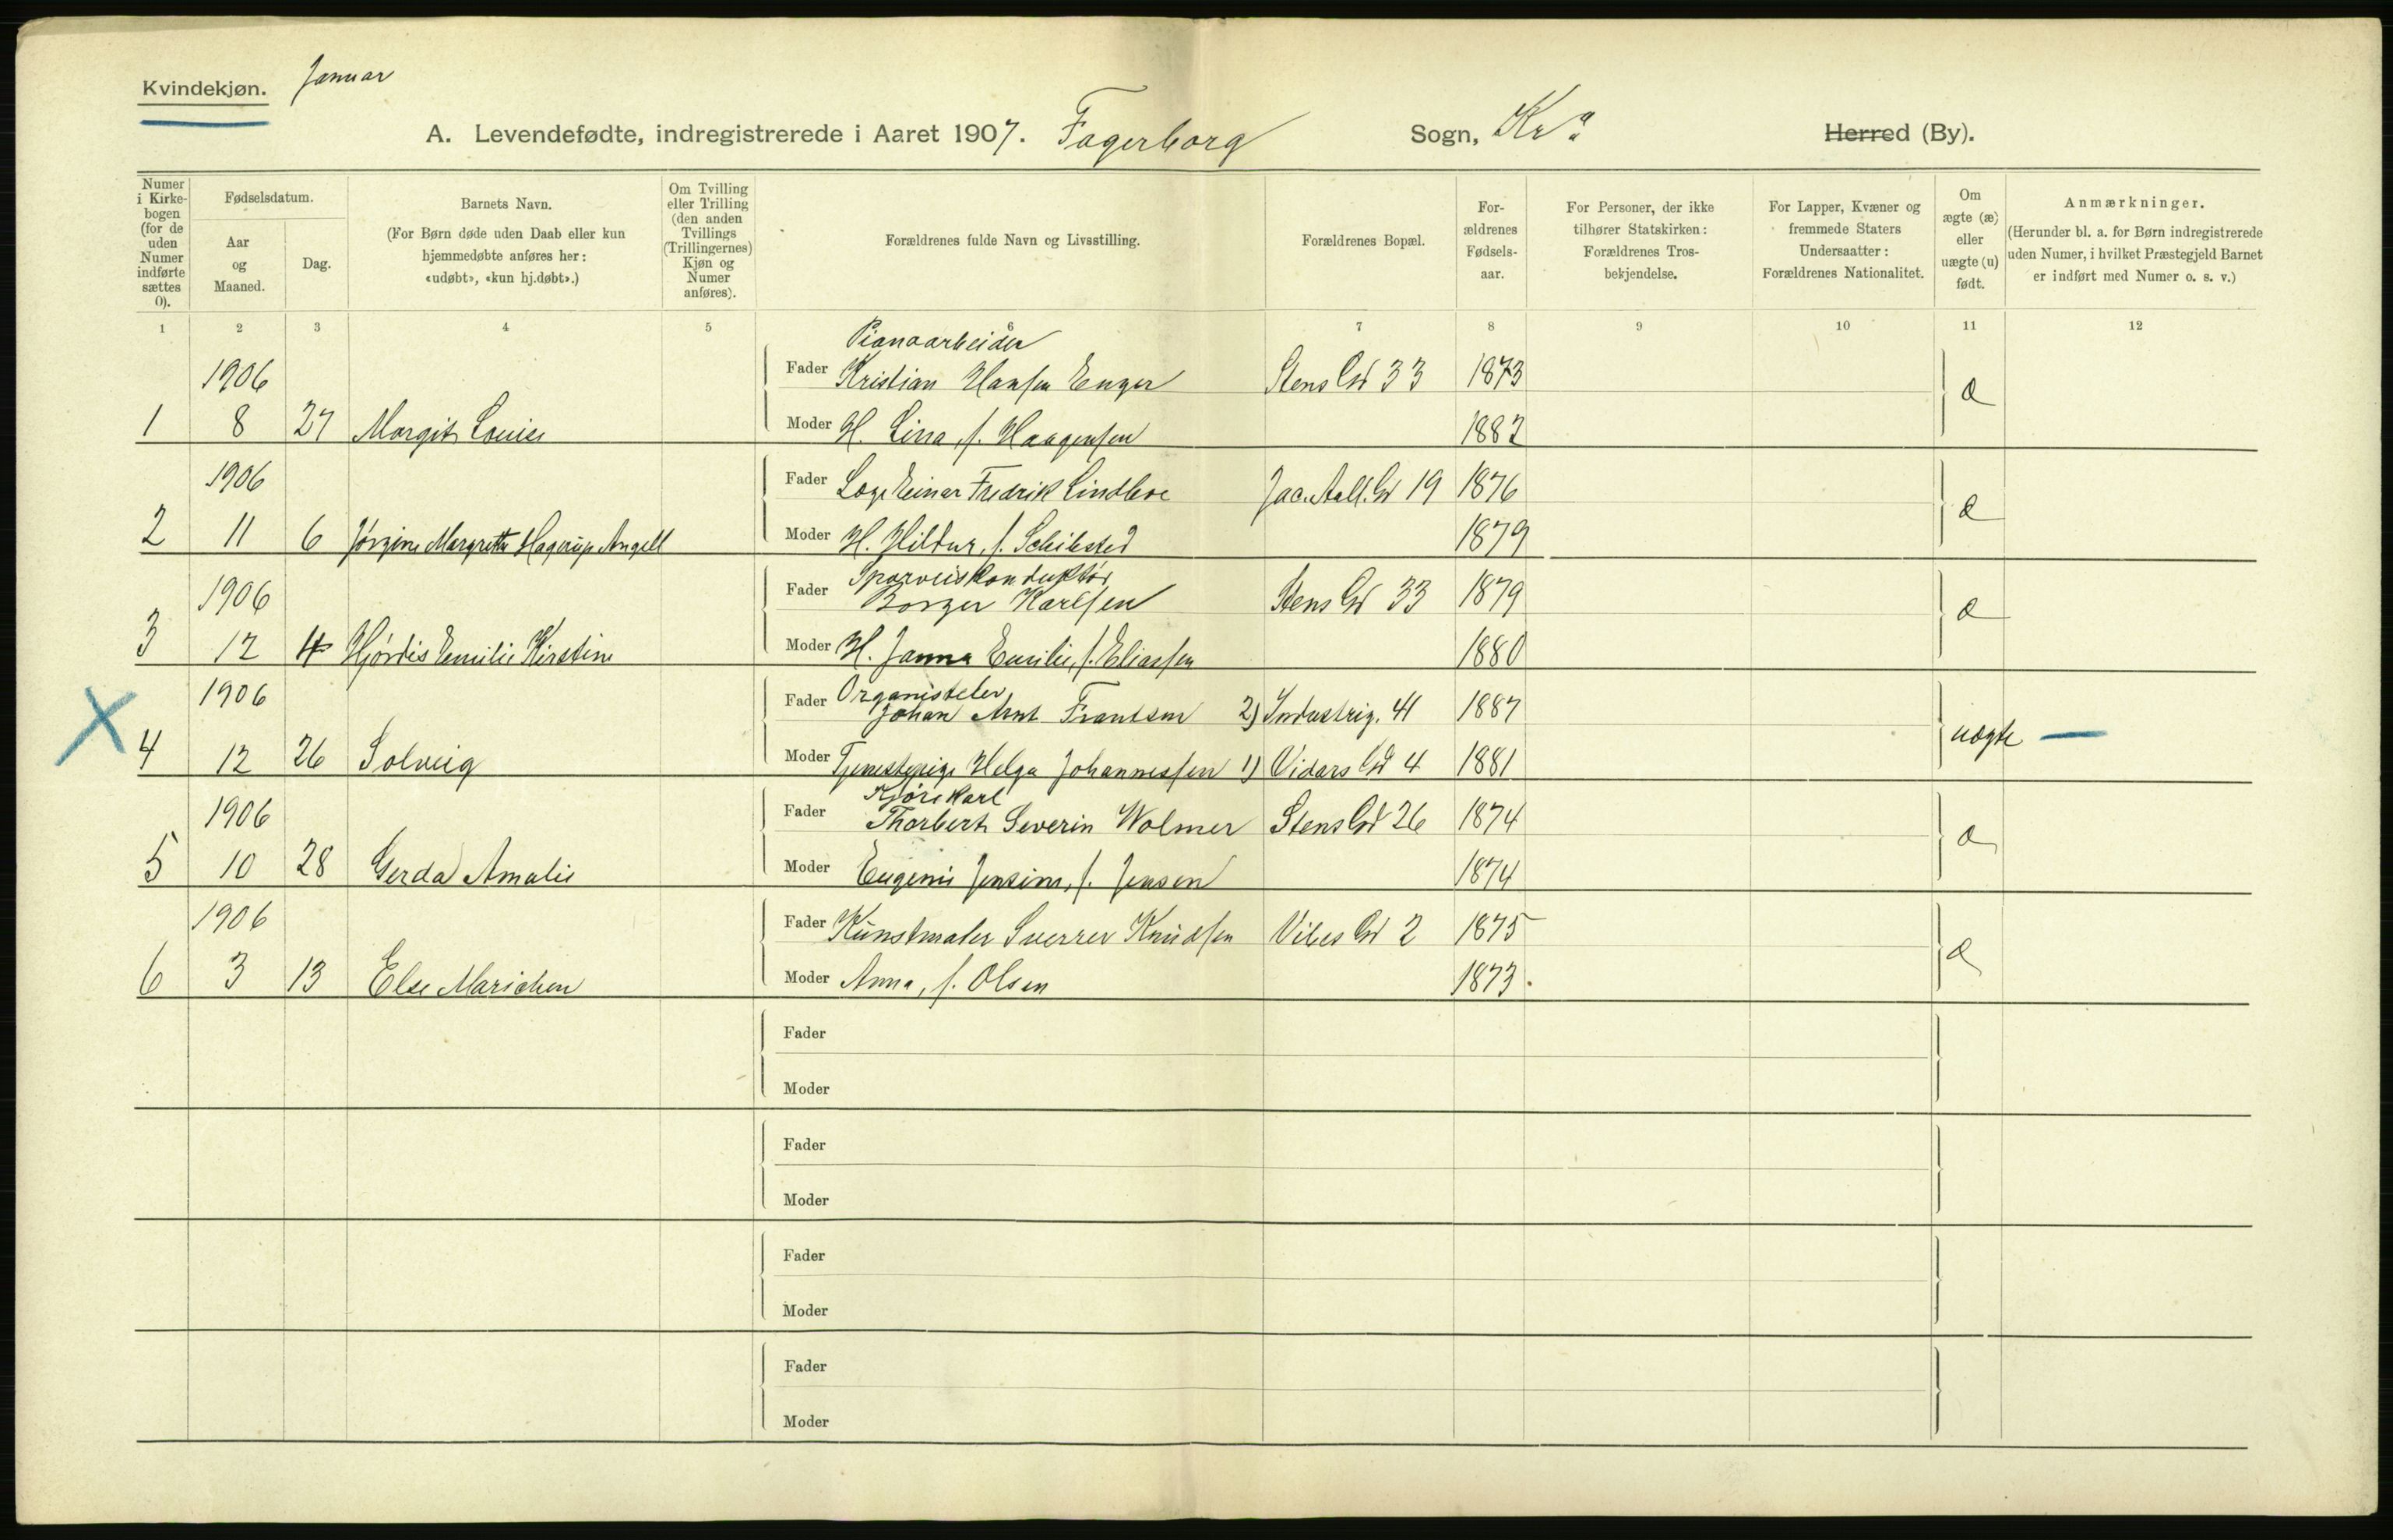 Kvindekjøn. Januar
A. Levendefødte, indregistrerede i Aaret 1907. Fagerborg Sogn, Kra Herred (By).
Numer i Kirkebogen (for de uden Numer indførte sættes 0).
Fødselsdatum.
Aar og Maaned.
Dag.
Barnets Navn.
(For Børn døde uden Daab eller kun hjemmedøbte anføres her: «udøbt», «kun hj.døbt».)
Om Tvilling eller Trilling (den anden Tvillings (Trillingernes) Kjøn og Numer anføres).
Forældrenes fulde Navn og Livsstilling.
Forældrenes Bopæl.
For-ældrenes Fødsels-aar.
For Personer, der ikke tilhører Statskirken: Forældrenes Tros-bekjendelse.
For Lapper, Kvæner og fremmede Staters Undersaatter: Forældrenes Nationalitet.
Om ægte (æ) eller uægte (u) født.
Anmærkninger.
(Herunder bl. a. for Børn indregistrerede uden Numer, i hvilket Præstegjeld Barnet er indført med Numer o. s. v.)
1 2 3 4 5 6 7 8 9 10 11 12
Pianoarbeider
1906 Fader Kristian Hansen Enger Stens Gd 33 1873 æ
1 8 27 Margit Louise Moder H. Lina, f. Haagensen 1882
1906 Fader Einar Fredrik Lindboe Jac. Aall. Gd 19 1876 æ
2 11 6 Jørgine Margrethe Hagerup Angell Moder H. Hildur, f. Schibsted 1879
Sporveiskonduktør
1906 Fader Borger Karlsen Stens Gd 33 1879 æ
3 12 4 Hjørdis Emilie Kirstine Moder H. Janna Emilie, f. Eliassen 1880
Organistelev
1906 Fader Johan Arnt Frantsen 2) Industrig. 41 1887 uægte —
X 4 12 26 Solveig Moder Tjenestepige Helga Johannessen 1) Vidars Gd 4 1881
Kjørekarl
1906 Fader Thorbert Severin Wolmer Stens Gd 26 1874 æ
5 10 28 Gerda Amalie Moder Eugenie Jensine, f. Jensen 1874
1906 Fader Kunstmaler Sverre Knudsen Vibes Gd 2 1875 æ
6 3 13 Else Marichen Moder Anna, f. Olsen 1873.
Fader
Moder
Fader
Moder
Fader
Moder
Fader
Moder